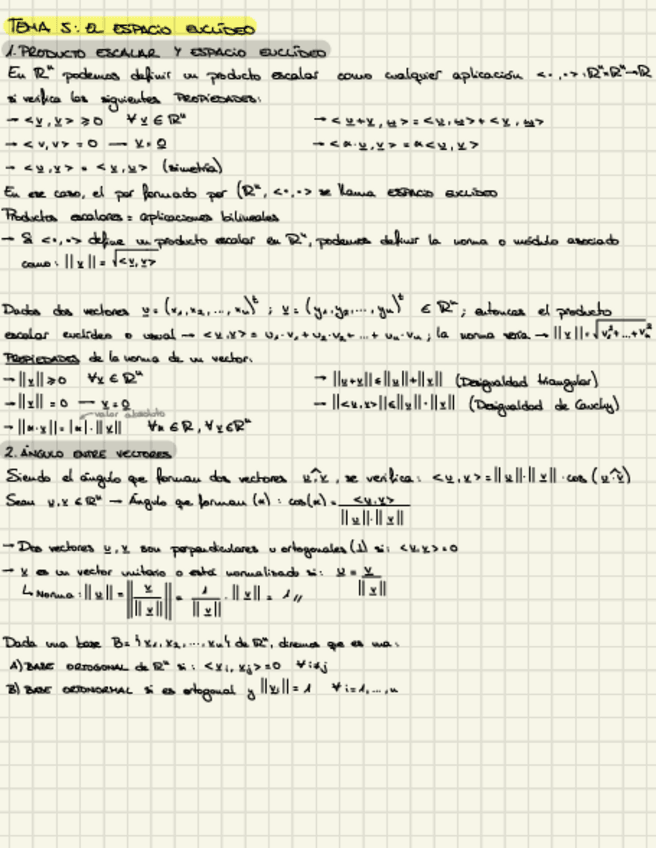 TEMA 5: EL ESPACIO EUCLÍDEO
1. PRODUCTO ESCALAR Y ESPACIO EUCLÍDEO
En ℝⁿ podemos definir un producto escalar como cualquier aplicación <·,·>: ℝⁿ×ℝⁿ→ℝ
si verifica las siguientes PROPIEDADES:
→ <v,v> ≥ 0 ∀v ∈ ℝⁿ → <u+v,w> = <u,w> + <v,w>
→ <v,v> = 0 — v = 0 → <α·u,v> = α<u,v>
→ <u,v> = <v,u> (simetría)
En ese caso, el par formado por (ℝⁿ, <·,·> se llama ESPACIO EUCLÍDEO
Productos escalares = aplicaciones bilineales
→ Si <·,·> define un producto escalar en ℝⁿ, podemos definir la norma o módulo asociado
como: ||v|| = √<v,v>
Dados dos vectores u = (x₁,x₂,...,xₙ)ᵗ ; v = (y₁,y₂,...,yₙ)ᵗ ∈ ℝⁿ; entonces el producto
escalar euclídeo o usual → <u,v> = u₁·v₁+u₂·v₂+...+uₙ·vₙ; la norma sería → ||v|| = √v₁²+...+vₙ²
PROPIEDADES de la norma de un vector:
→ ||v|| ≥ 0 ∀v ∈ ℝⁿ → ||u+v|| ≤ ||u||+||v|| (Desigualdad triangular)
→ ||v|| = 0 — v = 0 → ||<u,v>|| ≤ ||u||·||v|| (Desigualdad de Cauchy)
valor absoluto
→ ||α·v|| = |α|·||v|| ∀α ∈ ℝ, ∀v ∈ ℝⁿ
2. ÁNGULO ENTRE VECTORES
Siendo el ángulo que forman dos vectores u^v, se verifica: <u,v> = ||u||·||v||·cos(u^v)
Sean u,v ∈ ℝⁿ → Ángulo que forman (α): cos(α) = <u,v> / ||u||·||v||
→ Dos vectores u,v son perpendiculares u ortogonales (⊥) si: <u,v> = 0
→ v es un vector unitario o está normalizado si: u = v / ||v||
↳ Norma: ||u|| = || v / ||v|| || = 1 / ||v|| · ||v|| = 1 //
Dada una base B = {v₁,v₂,...,vₙ} de ℝⁿ, diremos que es una:
A) BASE ORTOGONAL de ℝⁿ si: <vᵢ,vⱼ> = 0 ∀i≠j
B) BASE ORTONORMAL si es ortogonal y ||vᵢ|| = 1 ∀i=1,...,n